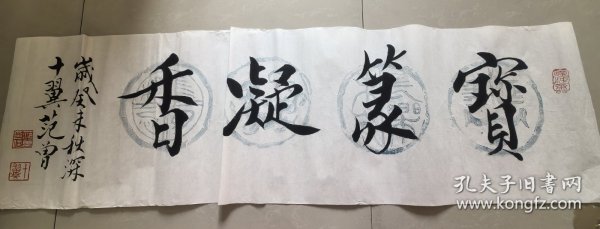 寶篆凝香
歲癸未秋深
十翼范曾
孔夫子旧书网
www.kongfz.com